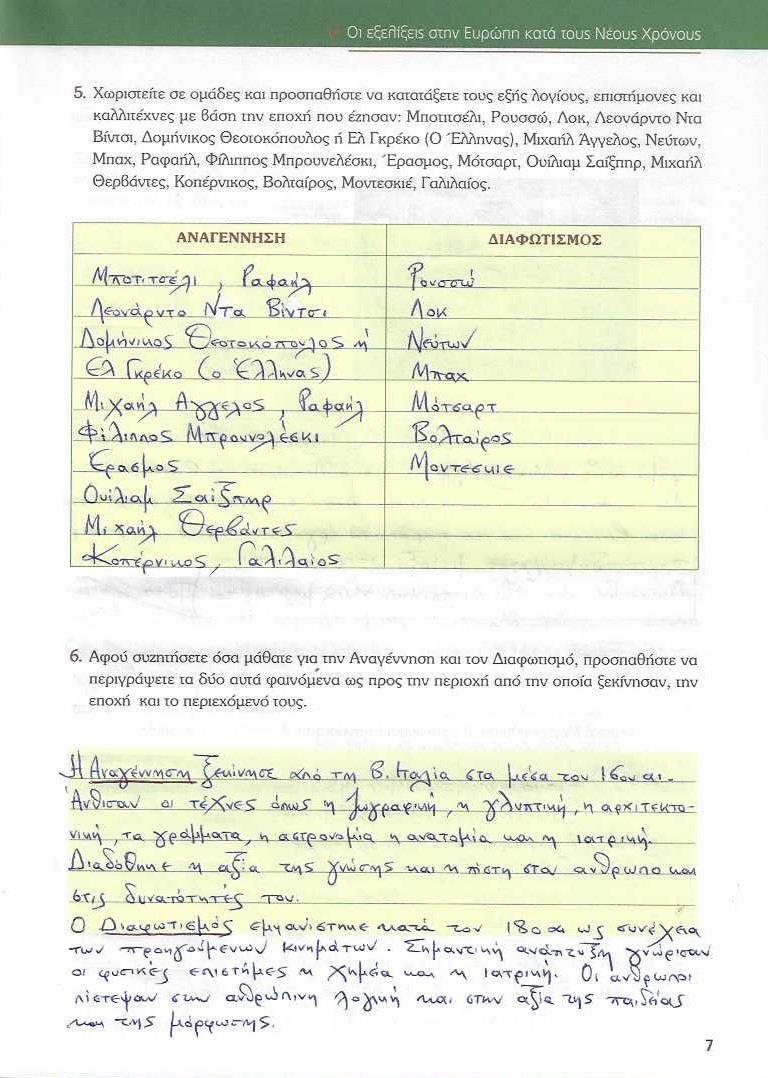 Οι εξελίξεις στην Ευρώπη κατά τους Νέους Χρόνους
5. Χωριστείτε σε ομάδες και προσπαθήστε να κατατάξετε τους εξής λογίους, επιστήμονες και
καλλιτέχνες με βάση την εποχή που έζησαν: Μποτιτσέλι, Ρουσσώ, Λοκ, Λεονάρντο Ντα
Βίντσι, Δομήνικος Θεοτοκόπουλος ή Ελ Γκρέκο (Ο Έλληνας), Μιχαήλ Άγγελος, Νεύτων,
Μπαχ, Ραφαήλ, Φίλιππος Μπρουνελέσκι, Έρασμος, Μότσαρτ, Ουίλιαμ Σαίξπηρ, Μιχαήλ
Θερβάντες, Κοπέρνικος, Βολταίρος, Μοντεσκιέ, Γαλιλαίος.
ΑΝΑΓΕΝΝΗΣΗ ΔΙΑΦΩΤΙΣΜΟΣ
Μποτιτσέλι , Ραφαήλ Ρουσσώ
Λεονάρντο Ντα Βίντσι Λοκ
Δομήνικος Θεοτοκόπουλος ή Νεύτων
Ελ Γκρέκο (ο Έλληνας) Μπαχ
Μιχαήλ Άγγελος , Ραφαήλ Μότσαρτ
Φίλιππος Μπρουνολέσκι Βολταίρος
Έρασμος Μοντεσκιε
Ουίλιαμ Σαίξπηρ
Μιχαήλ Θερβάντες
Κοπέρνικος, Γαλιλαίος
6. Αφού συζητήσετε όσα μάθατε για την Αναγέννηση και τον Διαφωτισμό, προσπαθήστε να
περιγράψετε τα δύο αυτά φαινόμενα ως προς την περιοχή από την οποία ξεκίνησαν, την
εποχή και το περιεχόμενό τους.
Η Αναγέννηση ξεκίνησε από τη Β. Ιταλία στα μέσα του 16ου αι.
Άνθισαν οι τέχνες όπως η ζωγραφική, η γλυπτική, η αρχιτεκτο-
νική, τα γράμματα, η αστρονομία η ανατομία και η ιατρική.
Διαδόθηκε η αξία της γνώσης και η πίστη στον άνθρωπο και
στις δυνατότητές του.
Ο Διαφωτισμός εμφανίστηκε κατά τον 18ο αι ως συνέχεια
των προηγούμενων κινημάτων. Σημαντική ανάπτυξη γνώρισαν
οι φυσικές επιστήμες η χημεία και η ιατρική. Οι άνθρωποι
πίστεψαν στην ανθρώπινη λογική και στην αξία της παιδείας
και της μόρφωσης.
7